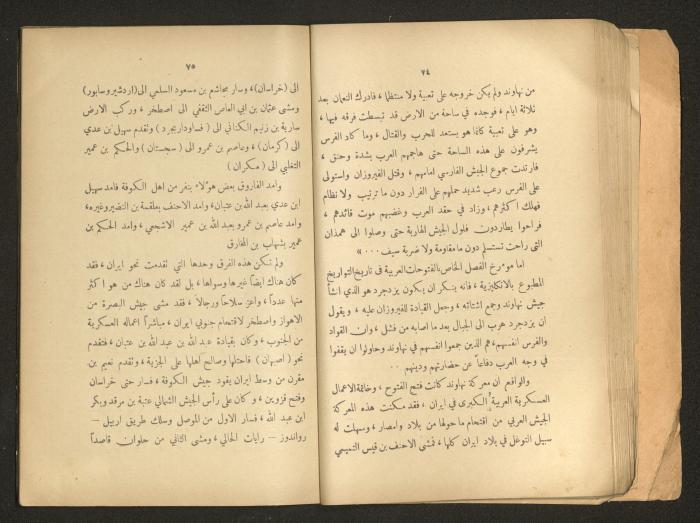 ٧٤
من نهاوند ولم يكن خروجه على تعبية ولا منتظما، فادرك النعمان بعد
ثلاثة ايام، فوجده في ساحة من الارض قد تبسطت فرقه فيها،
وهو على تعبية كانما هو يستعد للحرب والقتال، وما كاد الفرس
يشرفون على هذه الساحة حتى هاجمهم العرب بشدة وحنق،
فارتدت جموع الجيش الفارسي امامهم، وقتل الفيروزان واستولى
على الفرس رعب شديد حملهم على الفرار دون ما ترتيب ولا نظام
فهلك اكثرهم، وزاد في حقد العرب وغضبهم موت قائدهم،
فراحوا يطاردون فلول الجيش الهاربة حتى وصلوا الى همذان
التي راحت تستسلم دون ما مقاومة ولا ضربة سيف...»
اما مؤرخ الفصل الخاص بالفتوحات العربية في تاريخ التواريخ
المطبوع بالانكليزية، فانه ينكر ان يكون يزدجرد هو الذي انشأ
جيش نهاوند وجمع اشتاته، وجعل القيادة للفيروزان عليه، ويقول
ان يزدجرد هرب الى الجبال بعد ما اصابه من فشل، وان القواد
والفرس انفسهم، هم الذين جمعوا انفسهم في نهاوند وحاولوا ان يقفوا
في وجه العرب دفاعاً عن حضارتهم ودينهم ..
والواقع ان معركة نهاوند كانت فتح الفتوح، وخاتمة الاعمال
العسكرية العربية الكبرى في ايران، فقد مكنت هذه المعركة
الجيش العربي من اقتحام ما حولها من بلاد وامصار، وسهلت له
سبيل التوغل في بلاد ايران كلها، فمشى الاحنف بن قيس التميمي
٧٥
الى (خراسان)، وسار مجاشع بن مسعود السلمي الى (اردشير وسابور)
ومشى عثمان بن ابي العاص الثقفي الى اصطخر، وركب الارض
سارية بن زنيم الكناني الى (فسا ودار بجرد) وتقدم سهيل بن عدي
الى (كرمان)، وعاصم بن عمرو الى (سجستان) والحكم بن عمير
التغلبي الى (مكران)
وامد الفاروق بعض هؤلاء بنفر من اهل الكوفة فامد سهيل
ابن عدي بعبد الله بن عتبان، وامد الاحنف بعلقمة بن النضير وغيره،
وامد عاصم بن عمرو بعبد الله بن عمير الاشجعي، وامد الحكم بن
عمير بشهاب بن المخارق
ولم تكن هذه الفرق وحدها التي تقدمت نحو ايران، فقد
كان هناك ايضاً غيرها وسواها، بل لقد كان هناك من هو اكثر
منها عدداً، واعز سلاحاً ورجالا، فقد مشى جيش البصرة من
الاهواز واصطخر لاقتحام جنوبي ايران، مباشراً اعماله العسكرية
من الجنوب، وكان بقيادة عبد الله بن عبد الله بن عتبان، فتقدم
نحو (اصبهان) فاحتلها وصالح اهلها على الجزية، وتقدم نعيم بن
مقرن من وسط ايران يقود جيش الكوفة، فسار حتى خراسان
وفتح قزوين، وكان على رأس الجيش الشمالي عتبة بن مرقد وبكر
ابن عبد الله، فسار الاول من الموصل وسلك طريق اربيل –
رواندوز – رايات الحالي، ومشى الثاني من حلوان قاصداً